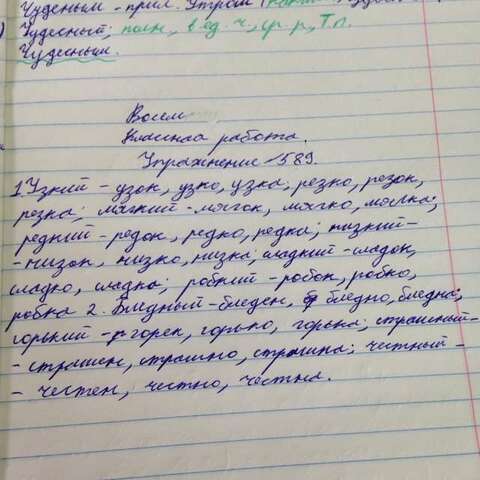 Чудесным - прил. Утром
Чудесный; полн, в ед. ч, ср. р, Т.п.
Чудесным.
Восем
Классная работа.
Упражнение 589.
1. Узкий - узок, узко, узка; резко, резок,
резка; мягкий - мягок, мягко, мягка;
редкий - редок, редко, редка; низкий -
- низок, низко, низка, сладкий - сладок,
сладко, сладка; робкий - робок, робко,
робка 2. Бледный - бледен, бледно, бледна;
горький - горек, горько, горька; страшный -
- страшен, страшно, страшна; честный -
- честен, честно, честна.